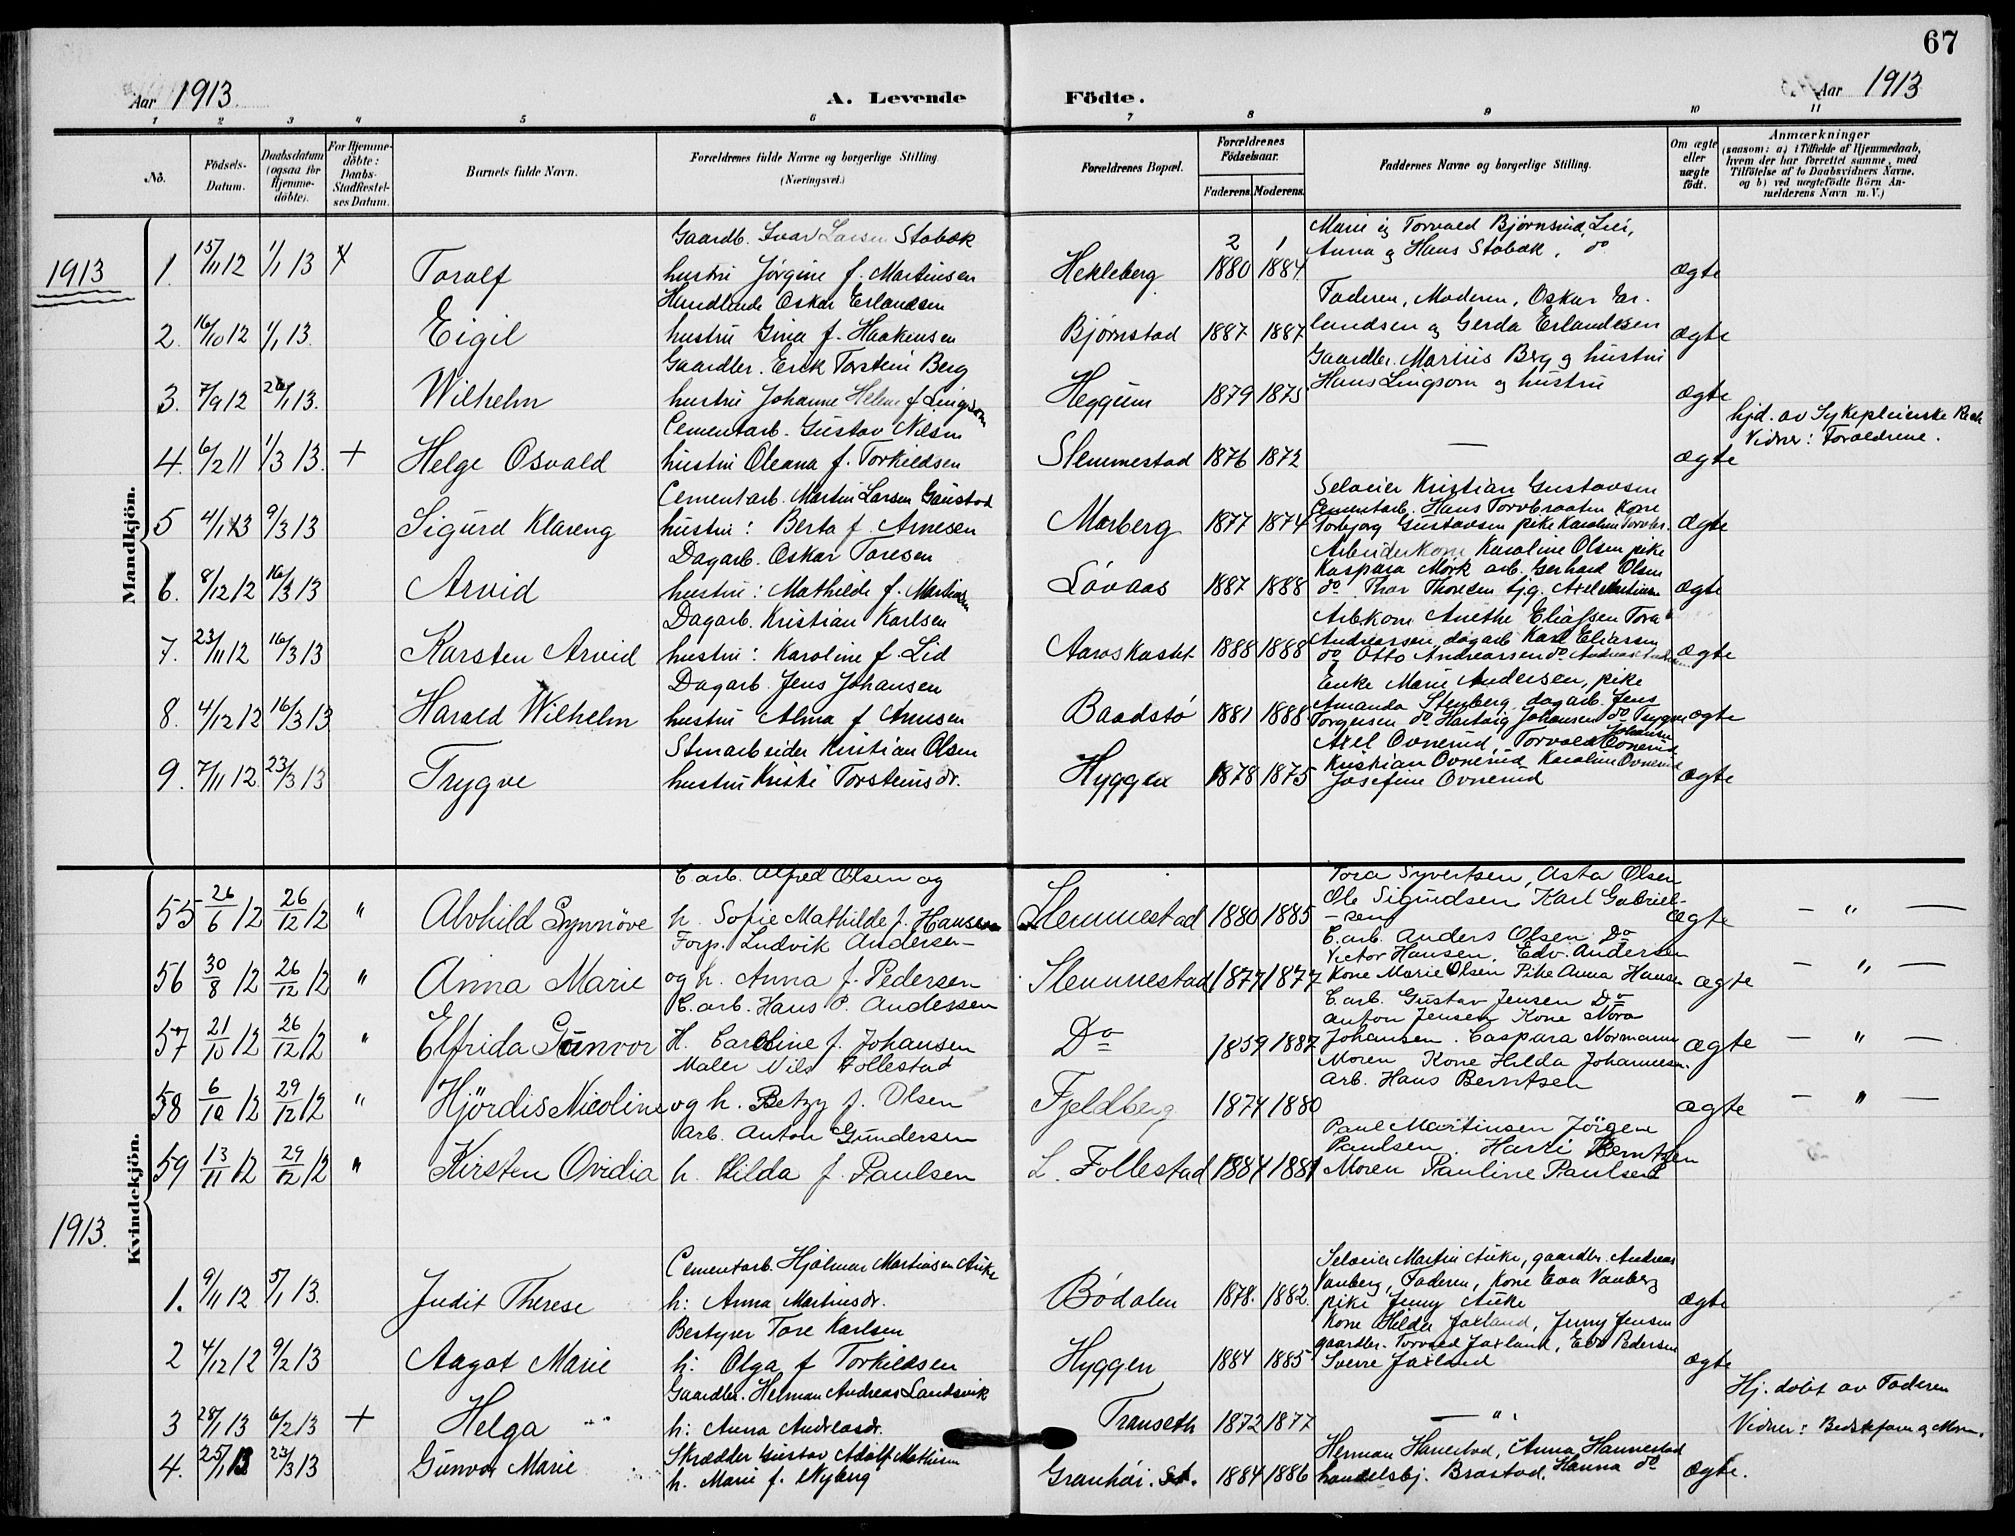 67
Aar 1913
A. Levende Födte.
Aar 1913
1 2 3 4 5 6 7 8 9 10 11
No.
Födsels-Datum.
Daabsdatum (ogsaa for Hjemmedøbte).
For Hjemmedöbte: Daabs-Stadfæstelses Datum.
Barnets fulde Navn.
Forældrenes fulde Navne og borgerlige Stilling. (Næringsvei.)
Forældrenes Bopæl.
Forældrenes Födselsaar.
Faderens. Moderens.
Faddernes Navne og borgerlige Stilling.
Om ægte eller uægte födt.
Anmærkninger
(saasom: a) i Tilfælde af Hjemmedaab, hvem der har forrettet samme, med Tilföielse af to Daabsvidners Navne, og b) ved uægtefödte Börn Anmelderens Navn m. V.)
Mandkjön.
1913
Gaardb. Ivar Larsen Stabæk
Marie og Torvald Bjørnsrud, Lier,
Anna og Hans Stabæk, do
1. 15/11 12 1/1 13 x Toralf hustru Jørgine f. Martinsen Hekleberg 2 1880 1 1884 ægte
Handlende Oskar Erlandsen
Faderen, Moderen, Oskar Er-
2. 16/10 12 1/1 13. Eigil hustru Gina f. Haakensen Bjørnstad 1887 1887 landsen og Gerda Erlandsen ægte
Gaardbr. Erik Torstein Berg
Gaardbr. Marius Berg og hustru
3. 7/9 12 26/1 13. Wilhelm hustru Johanne Helene f. Lingsom Heggum 1879 1875 Hans Lingsom og hustru ægte
Cementarb. Gustav Nilsen
hjd. av Sykepleierske
Vidner: Forældrene.
4. 6/2 11 1/3 13. + Helge Osvald hustru Oleana f. Torkildsen Slemmestad 1876 1872 — ægte
Cementarb. Martin Larsen Gaustad
Selveier Kristian Gustavsen
Cementarb. Hans Torvbraaten Kone
5 4/1 13 9/3 13 Sigurd Klareng hustru: Berta f. Arnesen Morberg 1877 1874 Torbjørg Gustavsen pike Karoline Torvbr. ægte
Dagarb. Oskar Toresen
Arbeiderkone Karoline Olsen pike
Kaspara Mørk arb. Gerhard Olsen
6. 8/12 12 16/3 13 Arvid hustru: Mathilde f. Martinsen Løvaas 1887 1888 do Thor Thoresen tj.g. Axel Martinsen ægte
Dagarb. Kristian Karlsen
Arb.kone Anethe Eliassen Tora
Andreassen dagarb Karl Eliassen
7. 23/11 12 16/3 13 Karsten Arvid hustru: Karoline f. Lid Aaroskastet 1888 1888 do Otto Andreassen do Andreas ægte
Dagarb. Jens Johansen
Enke Marie Andersen, pike
Amanda Stenberg dagarb. Jens
8. 4/12 12 16/3 13 Harald Wilhelm hustru Alma f. Arnesen Baadstø 1881 1888 Torgersen do Hartvig Johansen do Trygve Johansen ægte
Stenarbeider Kristian Olsen
Axel Ovnerud, Torvald Ovnerud
Kristian Ovnerud Karoline Ovnerud
9. 7/11 12 23/3 13 Trygve hustru Kristi Torsteinsdr. Hyggen 1878 1875 Josefine Ovnerud ægte
Kvindekjön.
C. arb. Alfred Olsen og
Tora Syvertsen, Asta Olsen
Ole Sigundsen, Karl Gabriel-
55 26/6 12 26/12 12 " Alvhild Synnöve h. Sofie Mathilde f. Hansen Slemmestad 1880 1885 -sen ægte — " —
Forp. Ludvik Andersen
C. arb. Anders Olsen Do
Victor Hansen, Edv. Andersen
56 30/8 12 26/12 12 " Anna Marie og h. Anna f. Pedersen Slemmestad 1877 1877 Kone Marie Olsen Pike Anna Hansen ægte — " —
C. arb. Hans P. Andersen
C. arb. Gustav Jensen Do
Anton Jensen Kone Nora
57 21/10 12 26/12 12 " Elfrida Gunvor H. Caroline f. Johansen Do 1859 1887 Johansen. Caspara Normann ægte — " —
Maler Nils Follestad
Moren Kone Hilda Johannesen.
Arb. Hans Berntsen
58 6/10 12 29/12 12 " Hjördis Nicoline og h. Betzy f. Olsen Fjeldberg 1874 1880 ægte — " —
Arb. Anton Gundersen
Paul Martinsen Jörgen
Paulsen. Harti Berntzen
59 13/11 12 29/12 12 " Kirsten Ovidia h. Hilda f. Paulsen L. Follestad 1884 1881 Moren Pauline Paulsen
1913.
Cementarb. Hjalmar Martinsen Auke
Selveier Martin Auke, gaardbr. Andreas
Vanberg, Faderen, Kone Eva Vanberg
1. 9/11 12 5/1 13. Judit Therese h: Anna Martinsdr. Bødalen 1878. 1882. pike Jenny Auke ægte
Bestyrer Tore Karlsen
Kone Hilda Jaxland, Jenny Jensen
gaardbr. Torvald Jaxland, Edv Pedersen
2 4/12 12 9/2 13 Aagot Marie h: Olga f Torkildsen Hyggen 1884 1885 Sverre Jaxland ægte
Gaardbr. Herman Andreas Landsvik
Hj. døbt av Faderen
3 28/1 13 6/2 13 + Helga " h: Anna Andreasdr. Transeth 1872 1877 — " Vidner: Bedstefaren og Moren.
Skrædder Gustav Adolf Mathisen
Herman Hannestad, Anna Hannestad
4. 25/1 13 23/3 13 Gunvor Marie h. Marie f. Nyberg Grønhøi. St. 1884 1886 handelsbj. Brastad, Hanna do ægte.